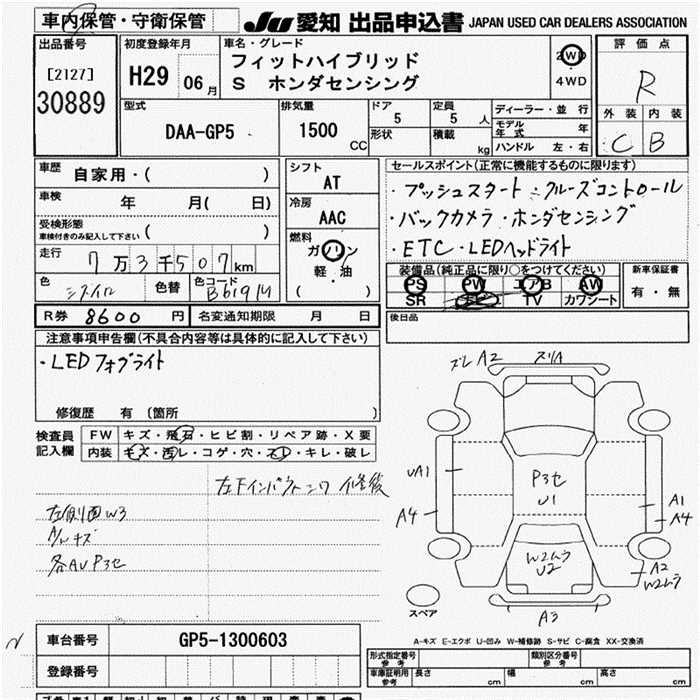 車内保管・守衛保管
JU 愛知 出品申込書 JAPAN USED CAR DEALERS ASSOCIATION
出品番号
[2127]
30889
初度登録年月
H29 06月
車名・グレード
フィットハイブリッド
S ホンダセンシング
2WD
4WD
評価点
R
外装 内装
C B
型式
DAA-GP5
排気量
1500 CC
ドア 5
形状
定員 5 人
積載 kg
ディーラー・並行
モデル年式 年
ハンドル 左・右
車歴 自家用・( )
車検 年 月( 日)
受検形態
車検付きのみ記入して下さい ( )
走行 7万3千507km
色 色替 色コード
シフト
AT
冷房
AAC
燃料
ガソリン
軽・油
( )
セールスポイント(正常に機能するものに限ります)
・プッシュスタート・クルーズコントロール
・バックカメラ・ホンダセンシング
・ETC・LEDヘッドライト
装備品(純正品に限り○をつけてください)
PS PW エアB AW
SR ナビ TV カワシート
新車保証書
有・無
後日品
R券 8600 円
名変通知期限 月 日
注意事項申告欄(不具合内容等は具体的に記入して下さい)
・LEDフォグライト
修復歴 有 (箇所 )
検査員記入欄
FW キズ・飛石・ヒビ割・リペア跡・X要
内装 キズ・汚レ・コゲ・穴・スレ・キレ・破レ
左側面W3
A/Wキズ
ズレ A2 スリA
UA1
A4
P3セ
U1
A1
A4
W2ムラ
U2
A2
W2ムラ
A3
スペア
A-キズ E-エクボ U-凹み W-補修跡 S-サビ C-腐食 XX-交換済
車台番号 GP5-1300603
登録番号
形式指定番号
参考
類別区分番号
参考
車庫証明用
参考
長さ cm 幅 cm 高さ cm